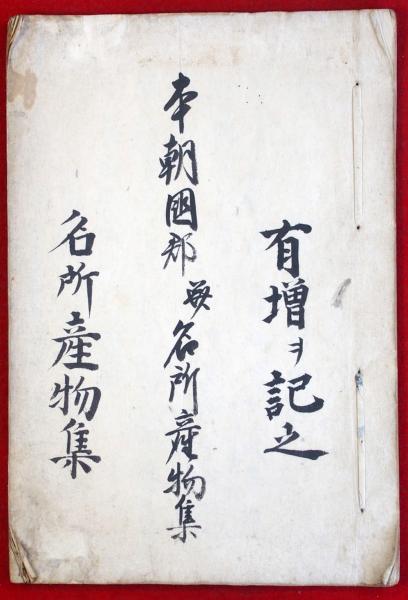 有増ヲ記之
本朝國郡并名所産物集
名所産物集